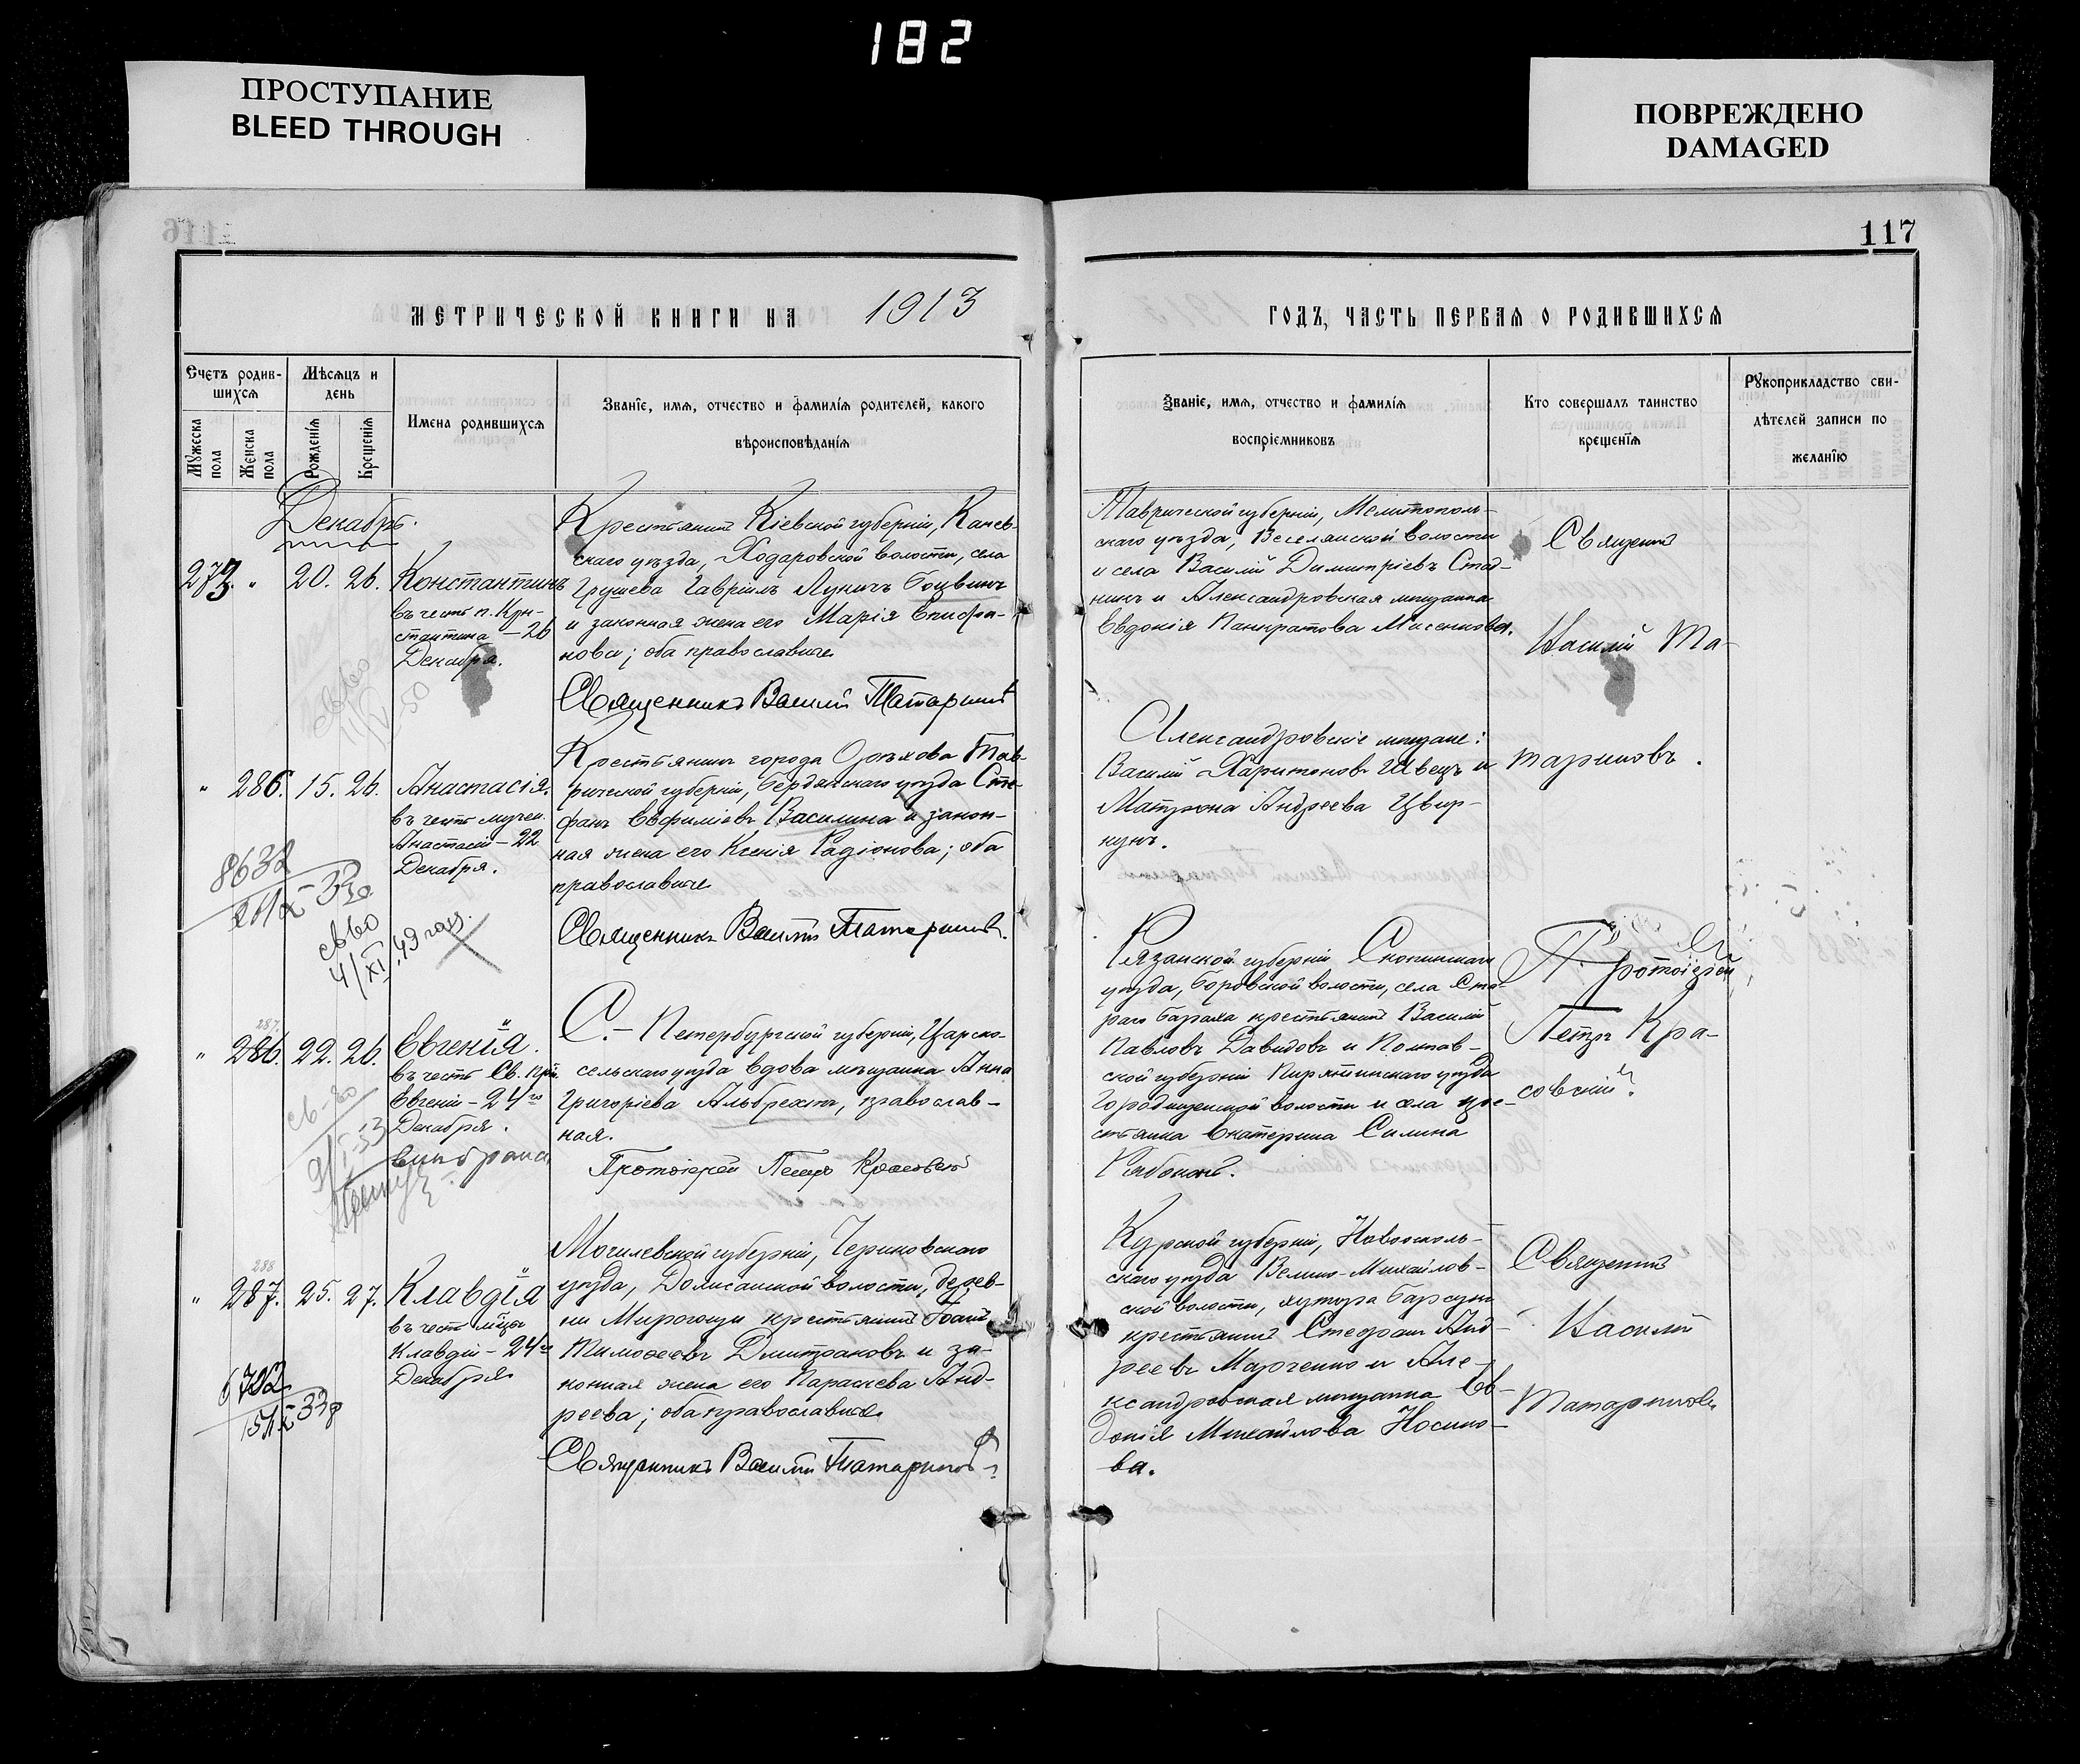 182
ПРОСТУПАНИЕ
BLEED THROUGH
ПОВРЕЖДЕНО
DAMAGED
117
МЕТРИЧЕСКОЙ КНИГИ НА 1913
ГОДЪ, ЧАСТЬ ПЕРВАЯ О РОДИВШИХСЯ
Счетъ родив-
шихся
Мужеска пола
Женска пола
Мѣсяцъ и
день
Рожденїя
Крещенїя
Имена родившихся
Званїе, имя, отчество и фамилїя родителей, какого
вѣроисповѣданїя
Званїе, имя, отчество и фамилїя
воспрїемниковъ
Кто совершалъ таинство
крещенїя
Рукоприкладство сви-
дѣтелей записи по
желанїю
Декабрь.
273. " 20. 26.
Константинъ
въ честь п. Кон-
стантина – 26
Декабря.
Крестьянинъ Кіевской губерніи, Канев-
скаго уѣзда, Ходаровской волости, села
Грушева Гавріилъ Лукичъ Боцвинъ
и законная жена его Марія Епифа-
нова; оба православные
Священникъ Василій Татариновъ
Таврической губерніи, Мелитополь-
скаго уѣзда, Веселянской волости
и села Василій Димитріевъ Стад-
никъ и Александровская мѣщанка
Евдокія Панкратова Мисенкова.
Священникъ
Василій Та-
" 286. 15. 26.
Анастасія.
въ честь мучен.
Анастасіи – 22
Декабря.
8632
Крестьянинъ города Орѣхова Тав-
рической губерніи, Бердянскаго уѣзда Сте-
фанъ Евфиміевъ Василина и закон-
ная жена его Ксенія Радіонова; оба
православные
Священникъ Василій Татариновъ.
св-во
4/XI.49 года
Александровскіе мѣщане:
Василій Харитоновъ Швецъ и
Матрона Андреева Цвир-
кунъ.
тариновъ.
287.
" 286. 22. 26.
Евгенія.
въ честь Св. Прп.
Евгеніи – 24го
Декабря.
С.-Петербургской губерніи, Царско-
сельскаго уѣзда вдова мѣщанка Анна
Григоріева Альбрехтъ, православ-
ная.
Протоіерей Петръ Красовскій
Рязанской губерніи Скопинскаго
уѣзда, Боровской волости, села Ста-
раго крестьянинъ Василій
Павловъ Давидовъ и Полтав-
ской губерніи Пирятинскаго уѣзда
Городищенской волости и села кре-
стьянка Екатерина Силина
Протоіерей
Петръ Кра-
совскій.
288
" 287. 25. 27.
Клавдія
въ честь мцы
Клавдіи – 24го
Декабря
6702
Могилевской губерніи, Чериковскаго
уѣзда, Долгсанской волости, дерев-
ни крестьянинъ Іоаннъ
Тимоѳеевъ Дмитраковъ и за-
конная жена его Параскева Анд-
реева; оба православные.
Священникъ Василій Татариновъ
Курской губерніи, Новосколь-
скаго уѣзда Велико-Михайлов-
ской волости, хутора Барсука
крестьянинъ Стефанъ Анд-
реевъ Марченко и Але-
ксандровская мѣщанка Ев-
докія Михайлова Носико-
ва.
Священникъ
Василій
Татариновъ